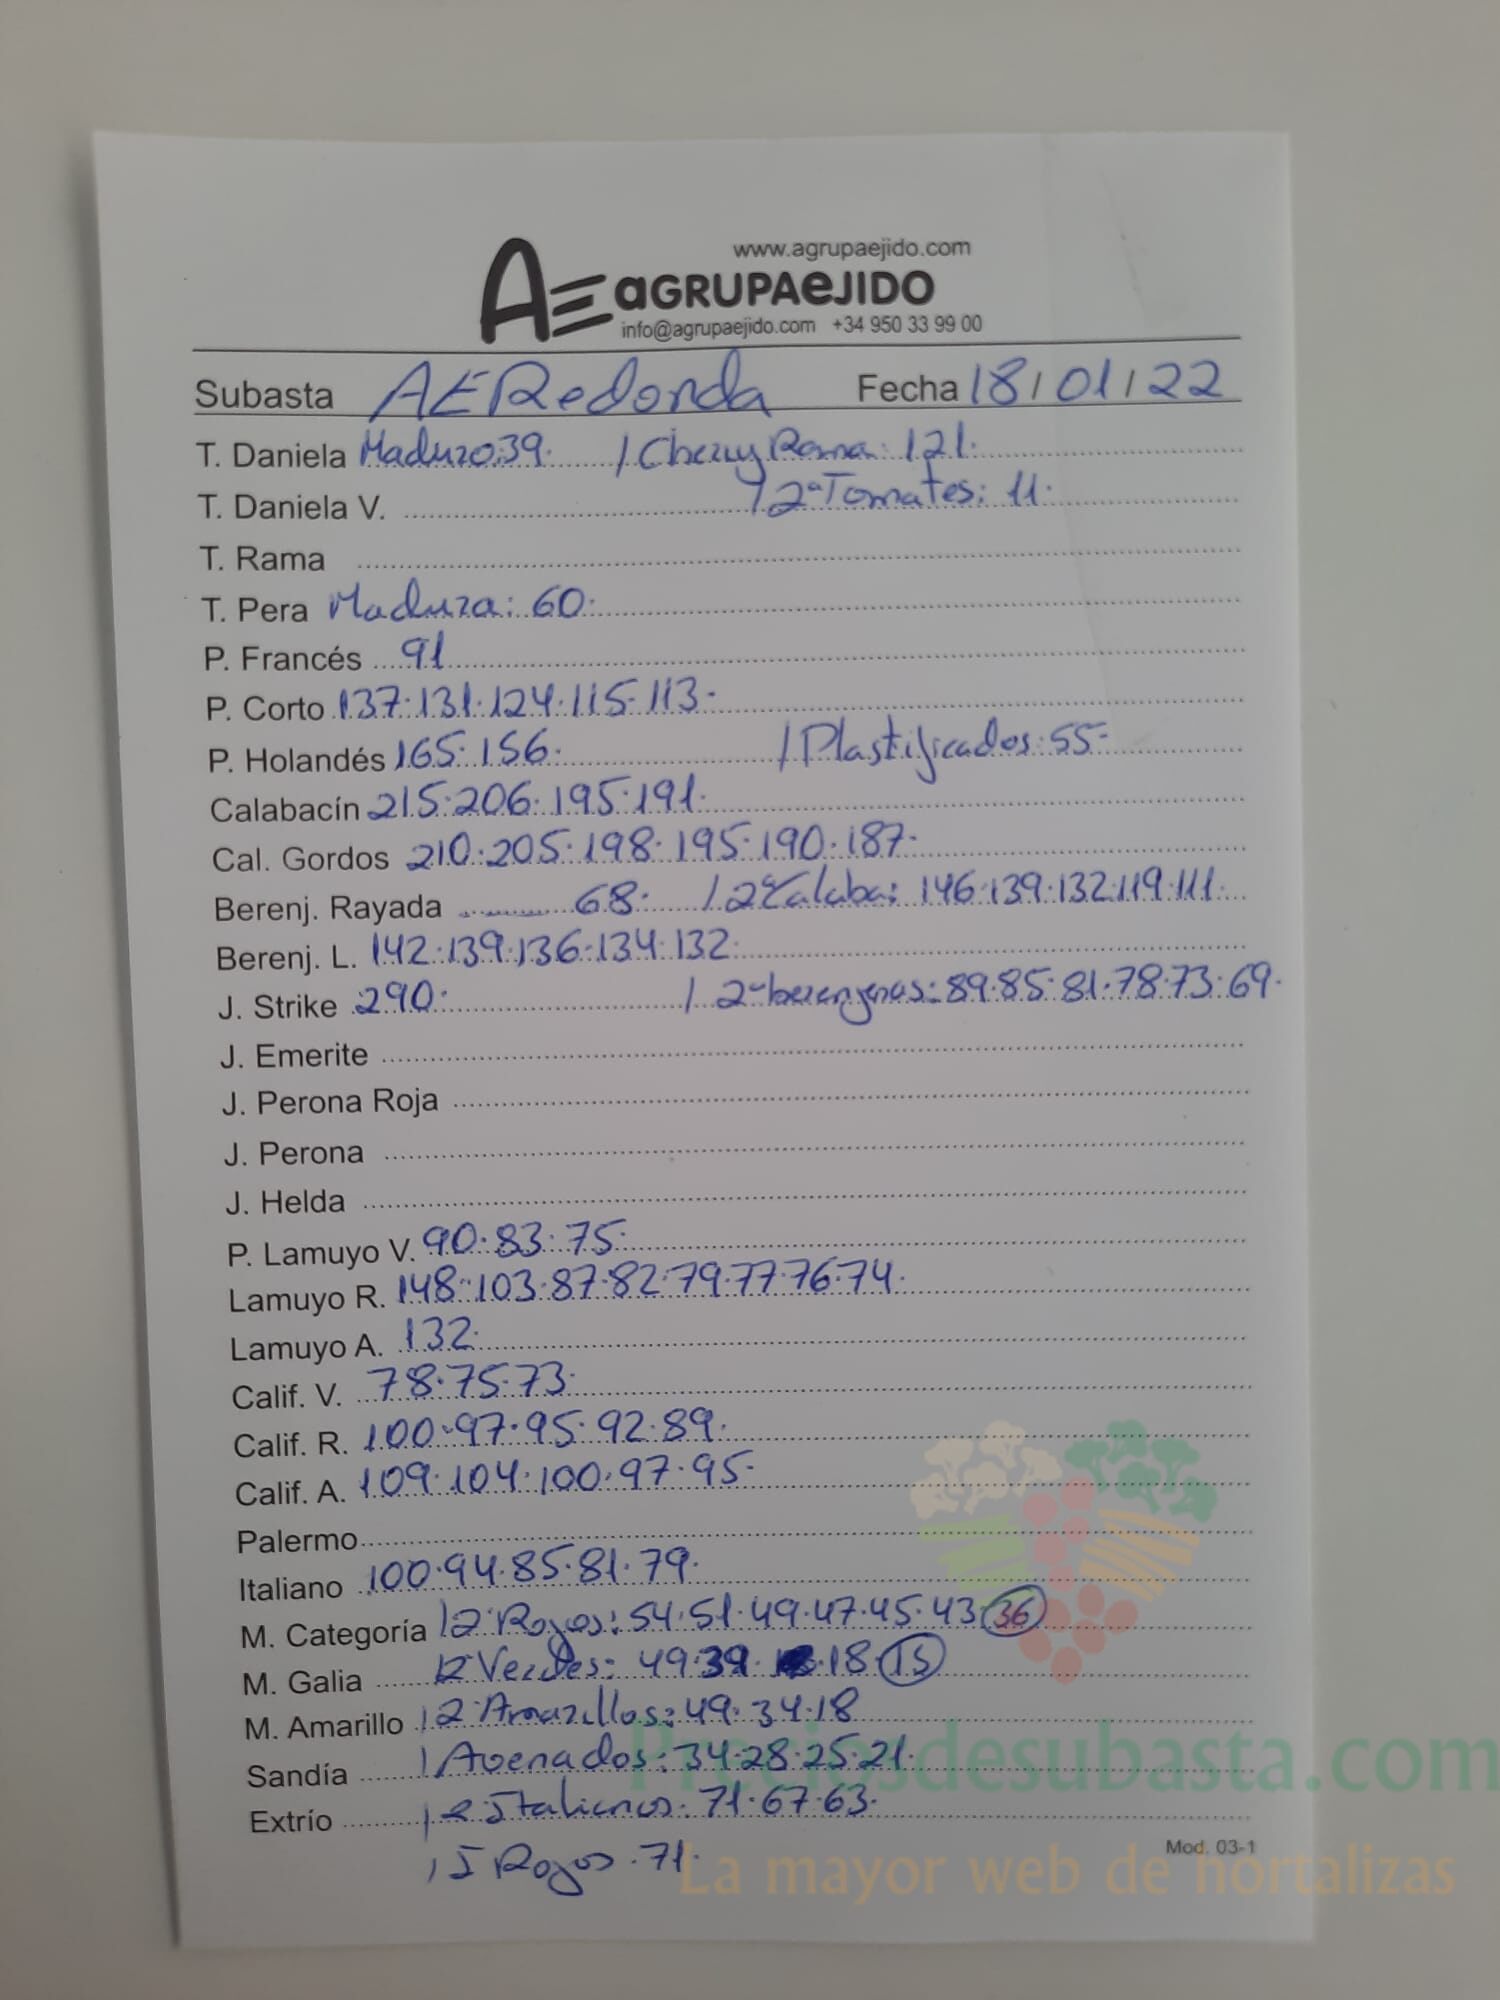 www.agrupaejido.com
AE aGRUPAeJIDO
info@agrupaejido.com +34 950 33 99 00
Subasta AERedonda Fecha 18/01/22
T. Daniela Maduro 39. / Cherry Rama: 121.
T. Daniela V. / 2ª Tomates: 11.
T. Rama
T. Pera Madura: 60.
P. Francés 91
P. Corto 137.131.124.115.113.
P. Holandés 165.156. / Plastificados: 55.
Calabacín 215.206.195.191.
Cal. Gordos 210.205.198.195.190.187.
Berenj. Rayada 68. / 2ª Calaba: 146.139.132.119.111.
Berenj. L. 142.139.136.134.132.
J. Strike 290. / 2ª berenjenas: 89.85.81.78.73.69.
J. Emerite
J. Perona Roja
J. Perona
J. Helda
P. Lamuyo V. 90.83.75.
Lamuyo R. 148.103.87.82.79.77.76.74.
Lamuyo A. 132.
Calif. V. 78.75.73.
Calif. R. 100.97.95.92.89.
Calif. A. 109.104.100.97.95.
Palermo
Italiano 100.94.85.81.79.
M. Categoría / 2ª Rojos: 54.51.49.47.45.43. 36
M. Galia / 2ª Verdes: 49.39. 18. 15
M. Amarillo / 2ª Amarillos: 49.34.18
Sandía / Avenados: 34.28.25.21.
Extrío / 2ª Italianos: 71.67.63.
/ I Rojos .71.
Mod. 03-1
Preciosdesubasta.com
La mayor web de hortalizas